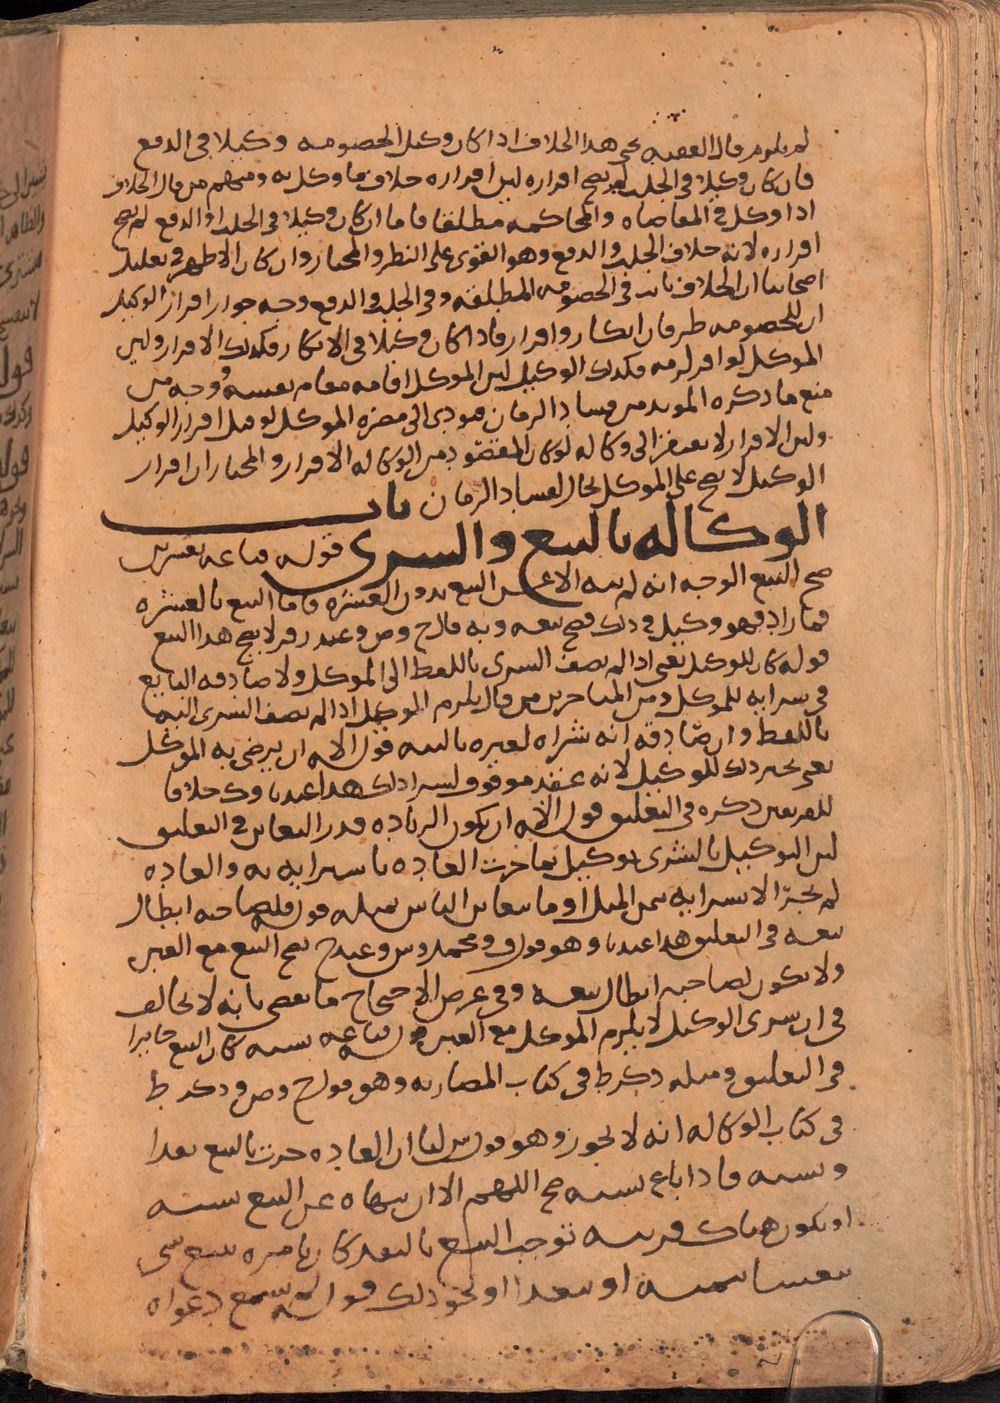 لم يلزم قال الفقيه يحي هذا الخلاف اذا كان وكيل الخصومه وكيلا في الدفع
فان كان وكيلا في الجلب لم يصح اقراره لان اقراره خلاف ما وكل به ومنهم من قال الخلاف
اذا وكل في المقاضاه والمحاكمه مطلقا فاما ان كان وكيلا في الجلب او الدفع لم يصح
اقراره لانه خلاف الجلب والدفع وهو القوي على النظر والمختار وان كان الاظهر في تعليل
اصحابنا ان الخلاف ثابت في الخصومه المطلقه وفي الجلب والدفع وجه جواز اقرار الوكيل
ان للخصومه طرفان انكار واقرار فاذا كان وكيلا في الانكار فكذلك الاقرار ولان
الموكل لو اقر لزمه فكذلك الوكيل لان الموكل اقامه مقام نفسه ووجه من
منع ما ذكره المويد من فساد الزمان فيودي الى مضره الموكل لو قبل اقرار الوكيل
ولان الاقرار لا يفتقر الى وكاله لو كان المقصود من الوكاله الاقرار والمختار ان اقرار
الوكيل لا يصح على الموكل بحال لفساد الزمان باب
الوكاله بالبيع والشرى قوله فباعه بعشرين
صح البيع الوجه انه لم ينبه الا عن البيع بدون العشره فاما البيع بالعشره
فما زاد فهو وكيل في ذلك فصح بيعه وبه قال ح وص وعند زفر لا يصح هذا البيع
قوله كان للوكيل يعني اذا لم يضف الشرى باللفظ الى الموكل ولا صادقه البايع
في شرايه للموكل ومن المتاخرين من قال يلزم الموكل اذا لم يضف الشرى اليه
باللفظ وان صادقه انه شراه لغيره بالنيه قوله الا ان يرضى به الموكل
يعني بخير ذلك للوكيل لانه عقد موقوف لشرا ذلك هذا عندنا وك خلافا
للفريقين ذكره في التعليق قوله الا ان يكون الزياده قدر التغابن في التعليق
لان التوكيل بالشرى توكيل بما جرت العاده باشرايه به والعاده
لم تجر الا بشرايه بثمن المثل او ما يتغابن الناس بمثله قوله فلصاحبه ابطال
بيعه في التعليق هذا عندنا وهو قول ف ومحمد وش وعند ح يصح البيع مع الغبن
ولا يكون لصاحبه ابطال بيعه وفي عرض الاحتجاج ما يقضي بانه لا يخالف
في ان شرى الوكيل لا يلزم الموكل مع الغبن قوله فباعه نسيه كان البيع جايزا
في التعليق ومثله ذكر ط في كتاب المضاربه وهو قول ح وص وذكر ط
في كتاب الوكاله انه لا يجوز وهو قول ش لنا ان العاده جرت بالبيع نقدا
ونسيه فاذا باع نسيه صح اللهم الا ان ينهاه عن البيع نسيه
او يكون هناك قرينه توجب البيع بالنقد كان يامره ببيع شي
او نقدا او نحو ذلك قوله لم يسمع دعواه